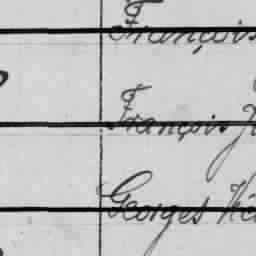 François
François
Georges